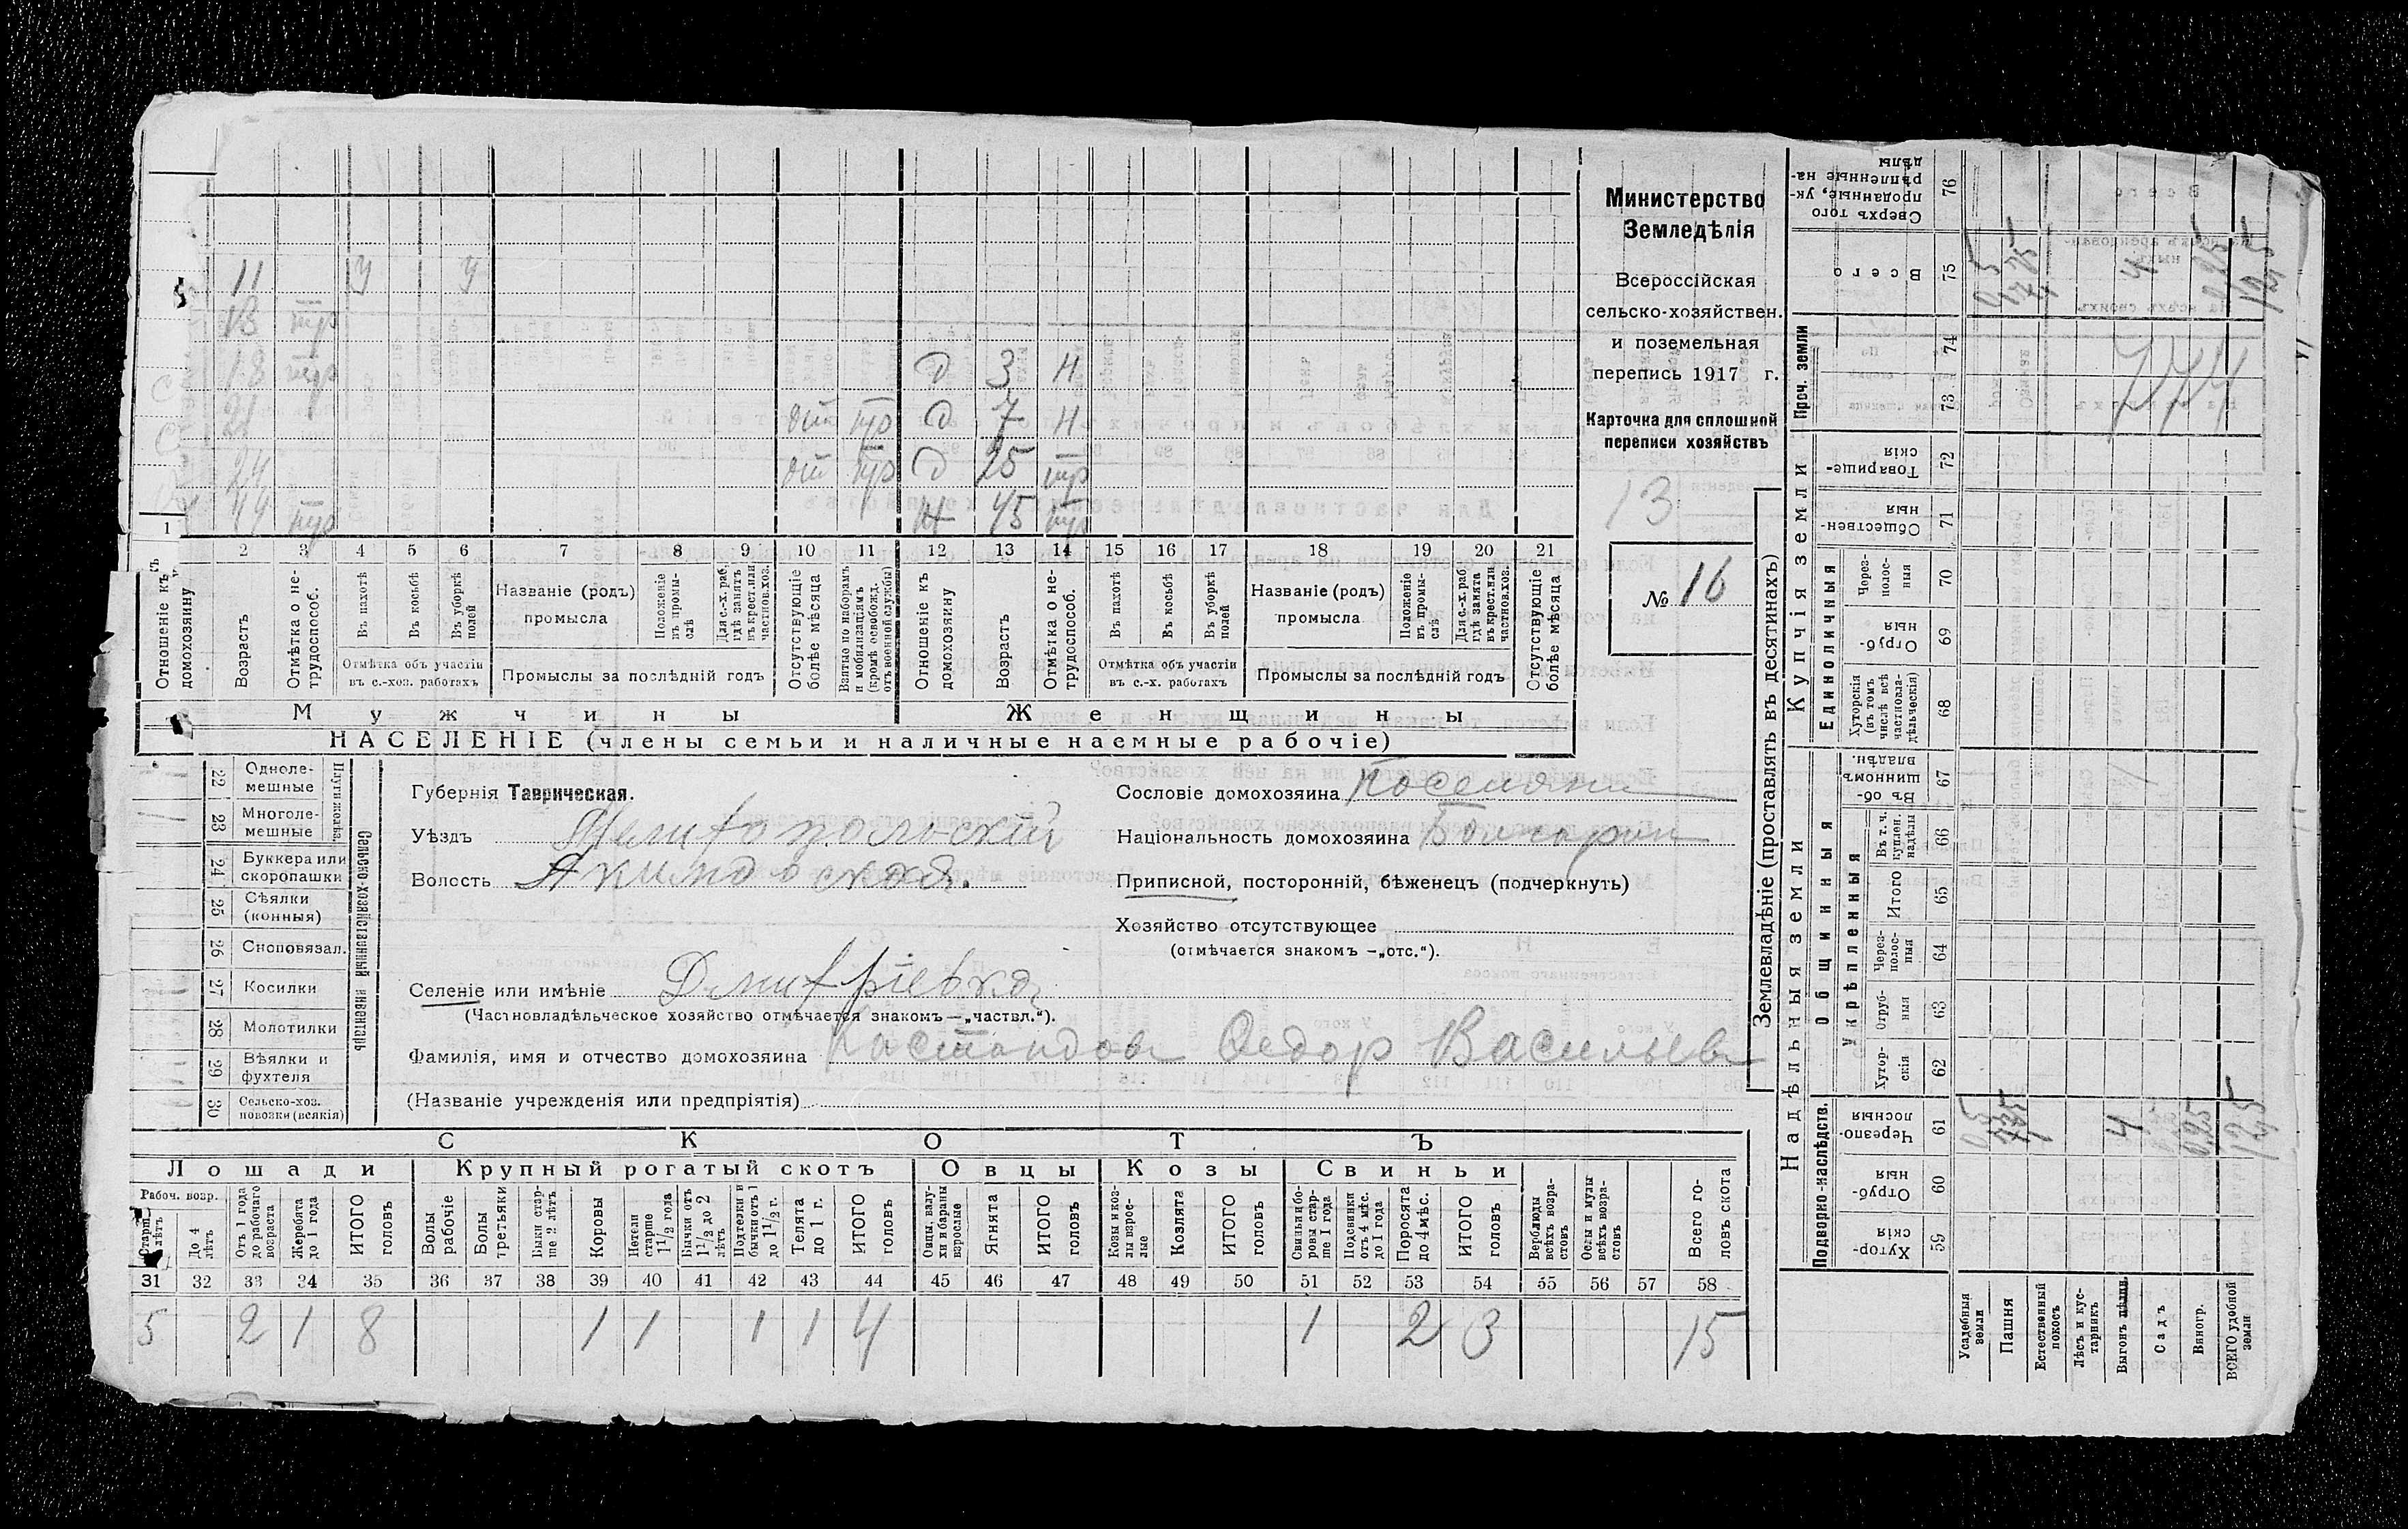 11 У У
13 тр
18 тр Д 3 Н
21 от тр Д 7 Н
24 от тр Д 25 тр
44 тр Ж 45 тр
1 2 3 4 5 6 7 8 9 10 11 12 13 14 15 16 17 18 19 20 21
Отношеніе къ домохозяину
Возрастъ
Отмѣтка о не-трудоспособ.
Въ пахотѣ
Въ косьбѣ
Въ уборкѣ полей
Отмѣтка объ участіи въ с.-хоз. работахъ
Названіе (родъ) промысла
Положеніе въ промы-слѣ
Для с.-х. раб. гдѣ занятъ въ крест. или частнов. хоз.
Промыслы за послѣдній годъ
Отсутствующіе болѣе мѣсяца
Взятые по наборамъ и мобилизаціямъ (кромѣ освобожд. отъ военной службы)
Отношеніе къ домохозяину
Возрастъ
Отмѣтка о не-трудоспособ.
Въ пахотѣ
Въ косьбѣ
Въ уборкѣ полей
Отмѣтка объ участіи въ с.-х. работахъ
Названіе (родъ) промысла
Положеніе въ промы-слѣ
Для с.-х. раб. гдѣ занята въ крест. или частнов. хоз.
Промыслы за послѣдній годъ
Отсутствующіе болѣе мѣсяца
Мужчины Женщины
НАСЕЛЕНІЕ (члены семьи и наличные наемные рабочіе)
Министерство
Земледѣлія
Всероссійская
сельско-хозяйствен.
и поземельная
перепись 1917 г.
Карточка для сплошной
переписи хозяйствъ
13
№ 16
22 Одноле-мешные
23 Многоле-мешные
24 Буккера или скоропашки
25 Сѣялки (конныя)
26 Сноповязал.
27 Косилки
28 Молотилки
29 Вѣялки и фухтеля
30 Сельско-хоз. повозки (всякія)
Сельско-хозяйственный инвентарь
Губернія Таврическая.
Уѣздъ Мелитопольскій
Волость Акимовская.
Селеніе или имѣніе Дмитріевка
(Частновладѣльческое хозяйство отмѣчается знакомъ—„частвл.“).
Фамилія, имя и отчество домохозяина Федор Васильев
(Названіе учрежденія или предпріятія)
Сословіе домохозяина Поселянин
Національность домохозяина Болгарин
Приписной, посторонній, бѣженецъ (подчеркнуть)
Хозяйство отсутствующее
(отмѣчается знакомъ —„отс.“).
СКОТЪ
Лошади Крупный рогатый скотъ Овцы Козы Свиньи
Рабоч. возр.
Старш. лѣтъ
До 4 лѣтъ
Отъ 1 года до рабочаго возраста
Жеребята до 1 года
ИТОГО головъ
Волы рабочіе
Волы третьяки
Быки стар-ше 2 лѣтъ
Коровы
Нетели старше 1½ года
Бычки отъ 1½ до 2 лѣтъ
Подтелки и бычки отъ 1 до 1½ г.
Телята до 1 г.
ИТОГО головъ
Овцы, валу-хи и бараны взрослые
Ягнята
ИТОГО головъ
Козы и коз-лы взрос-лые
Козлята
ИТОГО головъ
Свиньи и бо-ровы стар-ше 1 года
Подсвинки отъ 4 мѣс. до 1 года
Поросята до 4 мѣс.
ИТОГО головъ
Верблюды всѣхъ возра-стовъ
Ослы и мулы всѣхъ возра-стовъ
Всего го-ловъ скота
31 32 33 34 35 36 37 38 39 40 41 42 43 44 45 46 47 48 49 50 51 52 53 54 55 56 57 58
5 2 1 8 1 1 1 1 4 1 2 3 15
Землевладѣніе (проставлять въ десятинахъ)
Надѣльныя земли
Купчія земли
Проч. земли
Подворно-наслѣдств.
Общинныя
Укрѣпленныя
Единоличныя
Хутор-скія 59
Отруб-ныя 60
Черезпо-лосныя 61
Хутор-скія 62
Отруб-ныя 63
Через-полос-ныя 64
Итого 65
Въ т. ч. куплен. надѣлы 66
Въ об-щинномъ владѣн. 67
Хуторскія (въ томъ числѣ всѣ частновла-дѣльческія) 68
Отруб-ныя 69
Через-полос-ныя 70
Обществен-ныя 71
Товарище-скія 72
73
74
Всего 75
Сверхъ того проданные, ук-рѣпленные на-дѣлы 76
Усадебныя земли
Пашня
Естественный покосъ
Лѣсъ и кус-тарникъ
Выгонъ
Садъ
Виногр.
ВСЕГО удобной земли
0,5 4 0,25 12,5
0,5 4 0,25 12,5